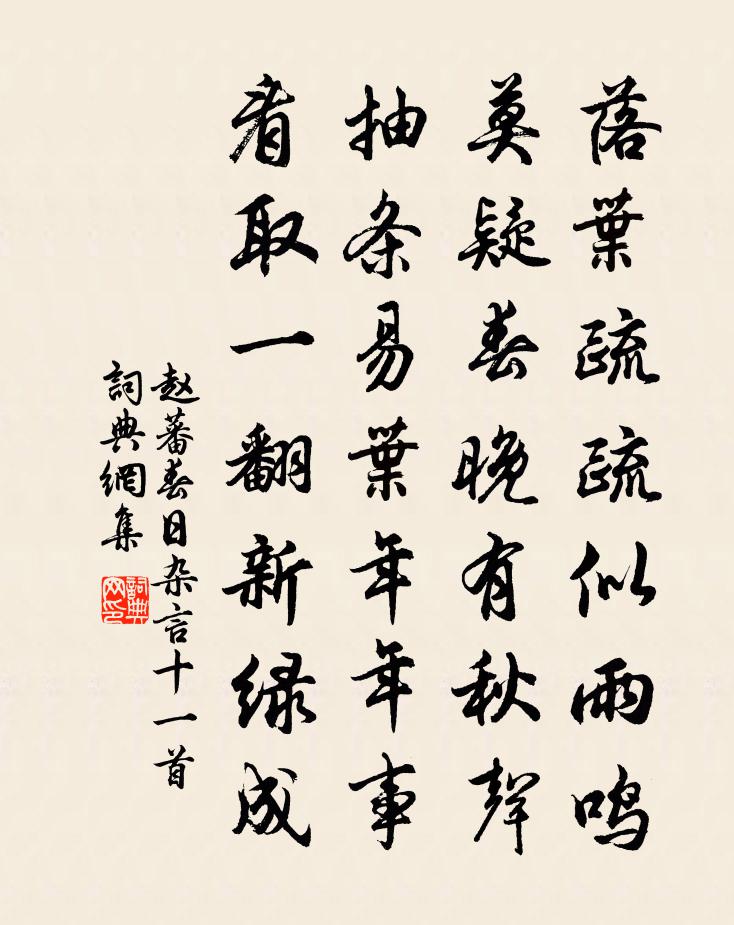 落葉疏疏似雨鸣
莫疑春晚有秋聲
抽条易葉年年事
看取一翻新绿成
赵蕃春日杂言十一首
詞典網集
詞典网印